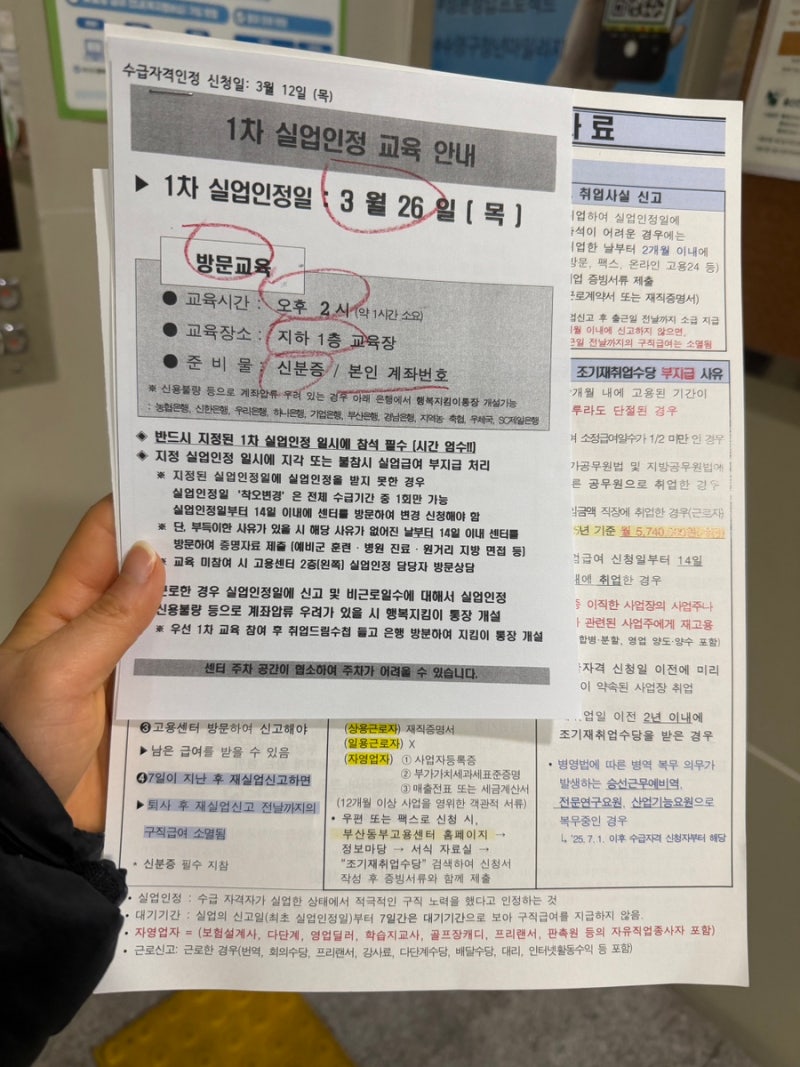 수급자격인정 신청일: 3월 12일 (목)
1차 실업인정 교육 안내
▶ 1차 실업인정일 : 3 월 26 일 [ 목 ]
방문교육
● 교육시간 : 오후 2시 (약 1시간 소요)
● 교육장소 : 지하 1층 교육장
● 준 비 물 : 신분증 / 본인 계좌번호
※ 신용불량 등으로 계좌압류 우려 있는 경우 아래 은행에서 행복지킴이통장 개설가능
: 농협은행, 신한은행, 우리은행, 하나은행, 기업은행, 부산은행, 경남은행, 지역농·축협, 우체국, SC제일은행
◈ 반드시 지정된 1차 실업인정 일시에 참석 필수 (시간 엄수!!)
◈ 지정 실업인정 일시에 지각 또는 불참시 실업급여 부지급 처리
※ 지정된 실업인정일에 실업인정을 받지 못한 경우
실업인정일 '착오변경' 은 전체 수급기간 중 1회만 가능
실업인정일부터 14일 이내에 센터를 방문하여 변경 신청해야 함
※ 단, 부득이한 사유가 있을 시 해당 사유가 없어진 날부터 14일 이내 센터를
방문하여 증명자료 제출 [예비군 훈련·병원 진료·원거리 지방 면접 등]
※ 교육 미참여 시 고용센터 2층(왼쪽) 실업인정 담당자 방문상담
근로한 경우 실업인정일에 신고 및 비근로일수에 대해서 실업인정
신용불량 등으로 계좌압류 우려가 있을 시 행복지킴이 통장 개설
※ 우선 1차 교육 참여 후 취업드림수첩 들고 은행 방분하여 지킴이 통장 개설
센터 주차 공간이 협소하여 주차가 어려울 수 있습니다.
료
취업사실 신고
업하여 실업인정일에
석이 어려운 경우에는
업한 날부터 2개월 이내에
방문, 팩스, 온라인 고용24 등)
업 증빙서류 제출
근로계약서 또는 재직증명서)
업신고 후 출근일 전날까지 소급 지급
월 이내에 신고하지 않으면,
일 전날까지의 구직급여는 소멸됨
조기재취업수당 부지급 사유
개월 내에 고용된 기간이
루라도 단절된 경우
소정급여일수가 1/2 미만 인 경우
가공무원법 및 지방공무원법에
른 공무원으로 취업한 경우
금액 직장에 취업한 경우(근로자)
년 기준 월 5,740,000원
업급여 신청일부터 14일
내에 취업한 경우
이직한 사업장의 사업주나
관련된 사업주에게 재고용
합병·분할, 영업 양도·양수 포함)
자격 신청일 이전에 미리
이 약속된 사업장 취업
업일 이전 2년 이내에
조기재취업수당을 받은 경우
• 병영법에 따른 병역 복무 의무가
발생하는 승선근무예비역,
전문연구요원, 산업기능요원으로
복무중인 경우
↳ '25. 7. 1. 이후 수급자격 신청자부터 해당
❸고용센터 방문하여 신고해야
▶남은 급여를 받을 수 있음
❹7일이 지난 후 재실업신고하면
▶퇴사 후 재실업신고 전날까지의
구직급여 소멸됨
* 신분증 필수 지참
(상용근로자) 재직증명서
(일용근로자) X
(자영업자) ① 사업자등록증
② 부가가치세과세표준증명
③ 매출전표 또는 세금계산서
(12개월 이상 사업을 영위한 객관적 서류)
• 우편 또는 팩스로 신청 시,
부산동부고용센터 홈페이지 →
정보마당 → 서식 자료실 →
"조기재취업수당" 검색하여 신청서
작성 후 증빙서류와 함께 제출
• 실업인정 : 수급 자격자가 실업한 상태에서 적극적인 구직 노력을 했다고 인정하는 것
• 대기기간 : 실업의 신고일(최초 실업인정일)부터 7일간은 대기기간으로 보아 구직급여를 지급하지 않음.
• 자영업자 = (보험설계사, 다단계, 영업딜러, 학습지교사, 골프장캐디, 프리랜서, 판촉원 등의 자유직업종사자 포함)
• 근로신고: 근로한 경우(번역, 회의수당, 프리랜서, 강사료, 다단계수당, 배달수당, 대리, 인터넷활동수익 등 포함)